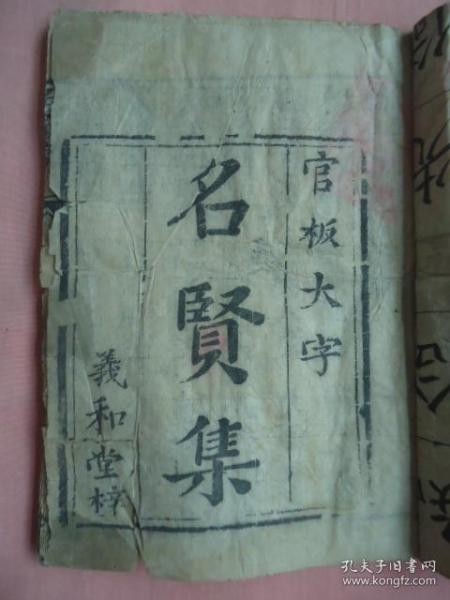 官板大字
名賢集
義和堂梓
孔夫子旧书网
www.kongfz.com